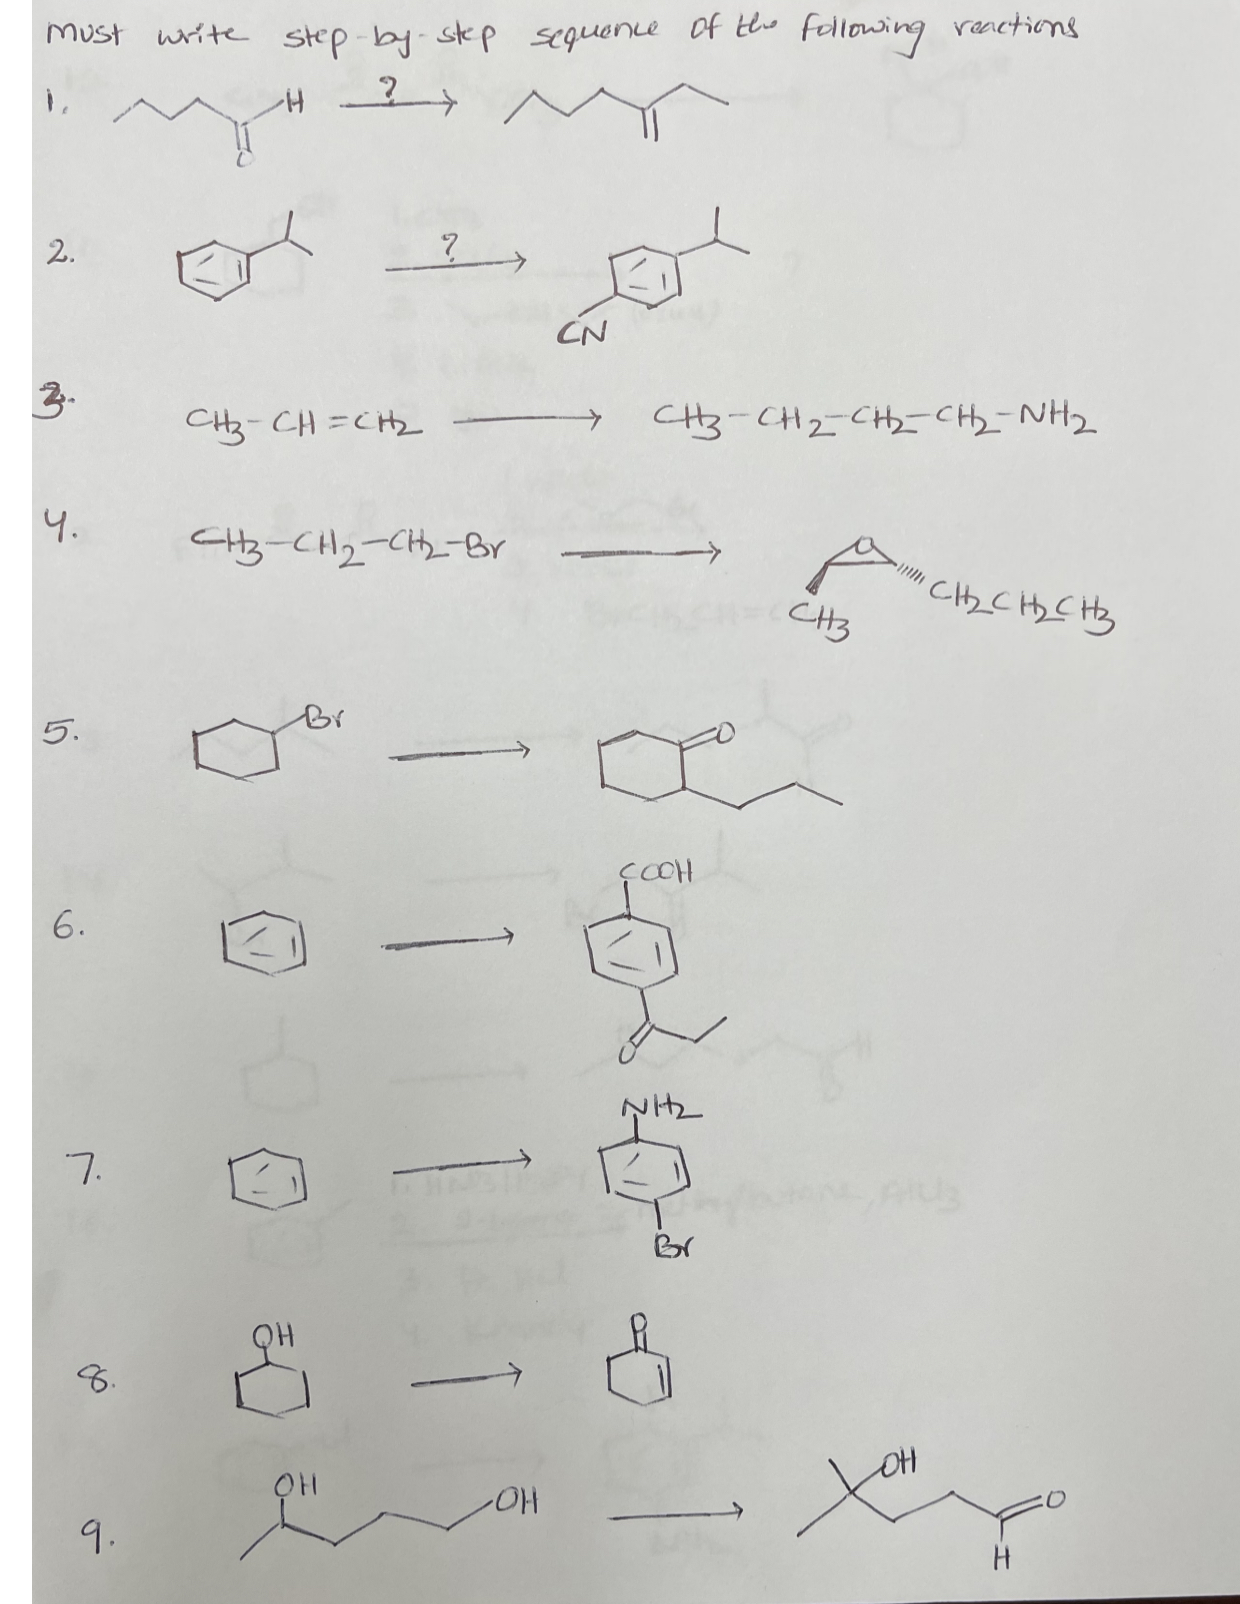 must write step-by-step sequence of the following reactions
1. H ?
O
2. ?
CN
3. CH3-CH=CH2 CH3-CH2-CH2-CH2-NH2
4. CH3-CH2-CH2-Br O
CH3 CH2CH2CH3
5. Br O
COOH
6.
O
NH2
7.
Br
OH O
8.
OH OH OH O
9. H